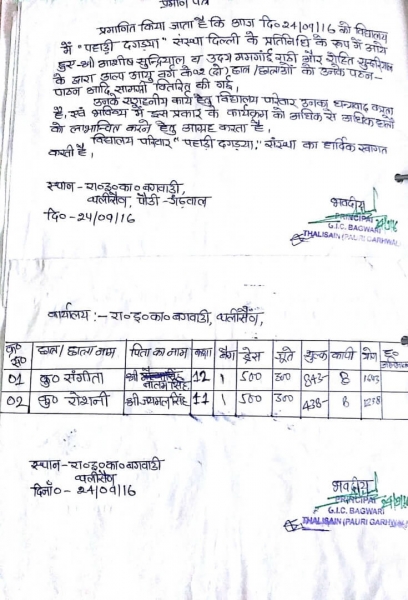 प्रमाण पत्र
प्रमाणित किया जाता है कि आज दि० 24/09/16 को विद्यालय
में "पहाड़ी दगड्या" संस्था दिल्ली के प्रतिनिधि के रूप में आये
श्री आशीष सुन्द्रियाल व उदय ममगाई राठी और रोहित सुन्द्रियाल
के द्वारा अल्प आयु वर्ग के 02 (दो) छात्र/छात्राओं को उनके पठन-
पाठन आदि सामग्री वितरित की गई,
उनके सराहनीय कार्य हेतु विद्यालय परिवार उनका धन्यवाद करता
है, एवं भविष्य में इस प्रकार के कार्यक्रम को अधिक से अधिक
को लाभान्वित करने हेतु आग्रह करता है,
विद्यालय परिवार "पहाड़ी दगड्या," संस्था का हार्दिक स्वागत
करती है,
स्थान- रा०इ०का० बगवाड़ी,
थलीसैंण, पौड़ी-गढ़वाल
दि०- 24/09/16
भवदीय
PRINCIPAL
G.I.C. BAGWARI
THALISAIN (PAURI GARHWAL)
कार्यालय :- रा०इ०का० बगवाड़ी, थलीसैंण,
क्र० स० छात्र/छात्रा नाम पिता का नाम कक्षा बैग ड्रेस जूते शुल्क कापी योग
01 कु० संगीता श्री सिंह 12 1 500 300 843- 8 1643
02 कु० रोशनी श्री सिंह 11 1 500 300 438- 8 1238
स्थान- रा०इ०का० बगवाड़ी
थलीसैंण
दिनाँ०- 24/09/16
भवदीय
PRINCIPAL
G.I.C. BAGWARI
THALISAIN (PAURI GARHWAL)